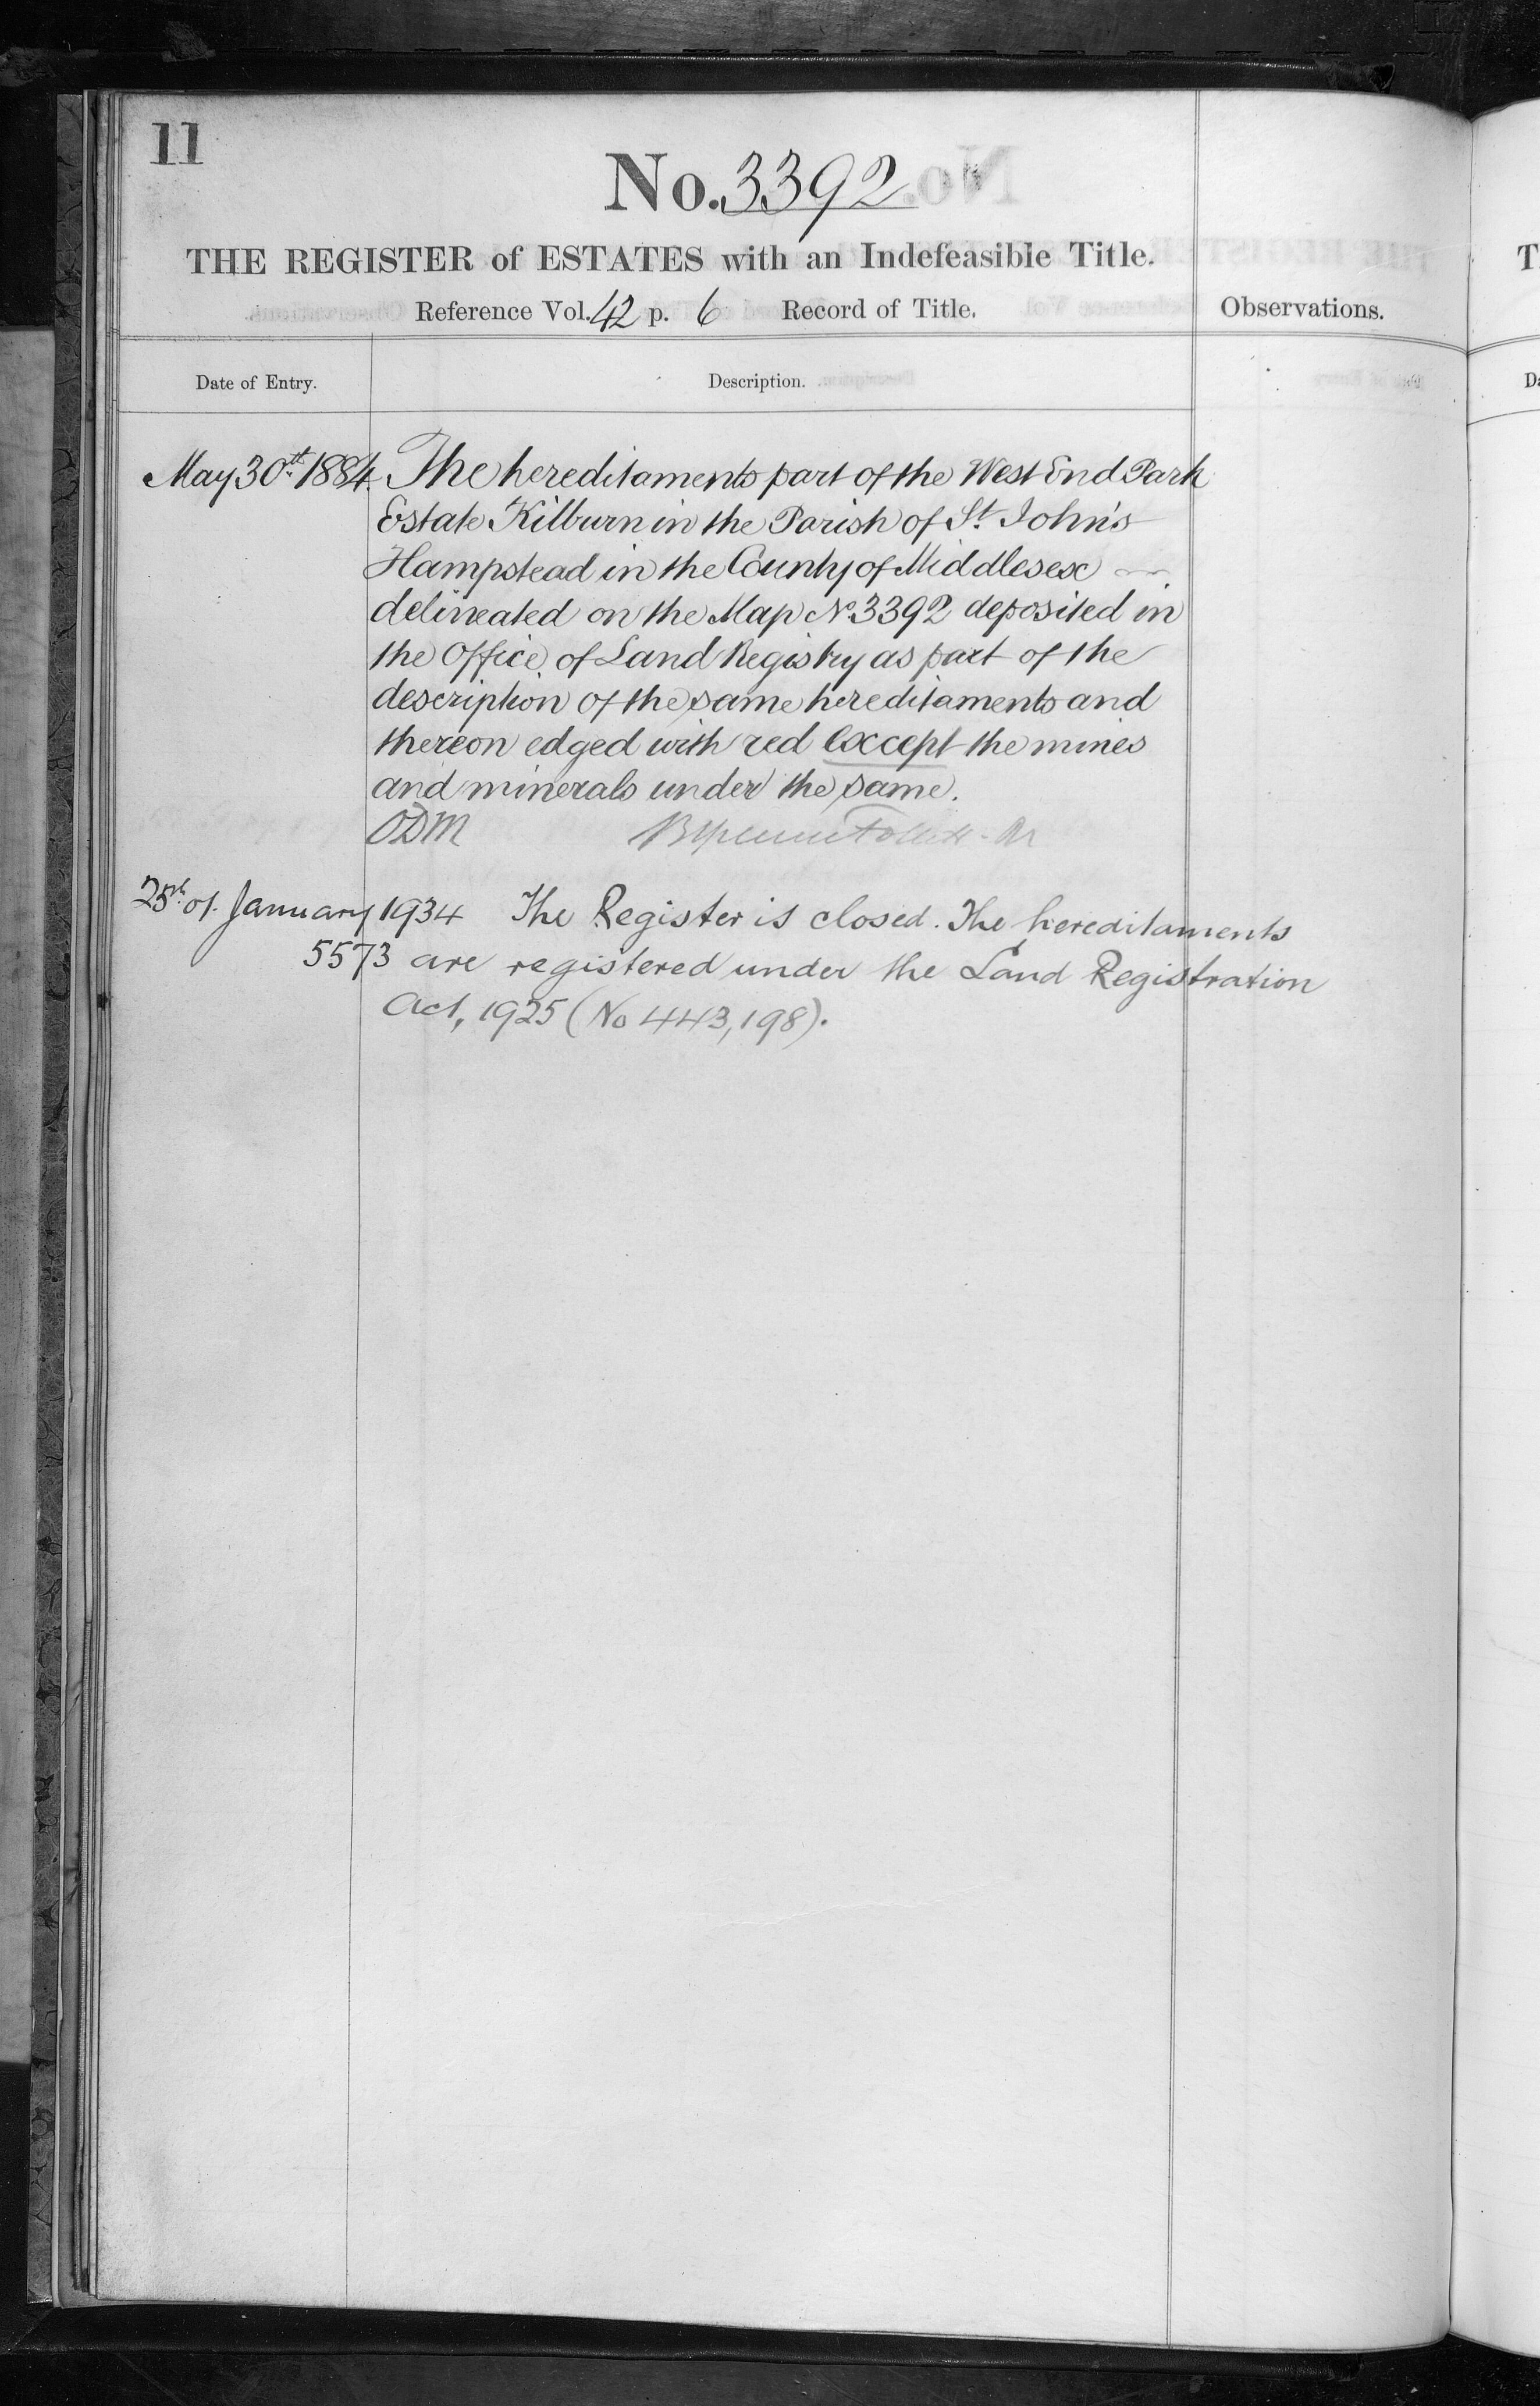 11
No. 3392
THE REGISTER of ESTATES with an Indefeasible Title.
Reference Vol. 42 p. 6 Record of Title.
Observations.
Date of Entry.
Description.
May 30th 1884. The hereditaments part of the West End Park
Estate Kilburn in the Parish of St. John's
Hampstead in the County of Middlesex
delineated on the Map No 3392 deposited in
the Office of Land Registry as part of the
description of the same hereditaments and
thereon edged with red except the mines
and minerals under the same.
ODM
25th of January 1934 The Register is closed. The hereditaments
5573 are registered under the Land Registration
Act, 1925 (No 443,198).